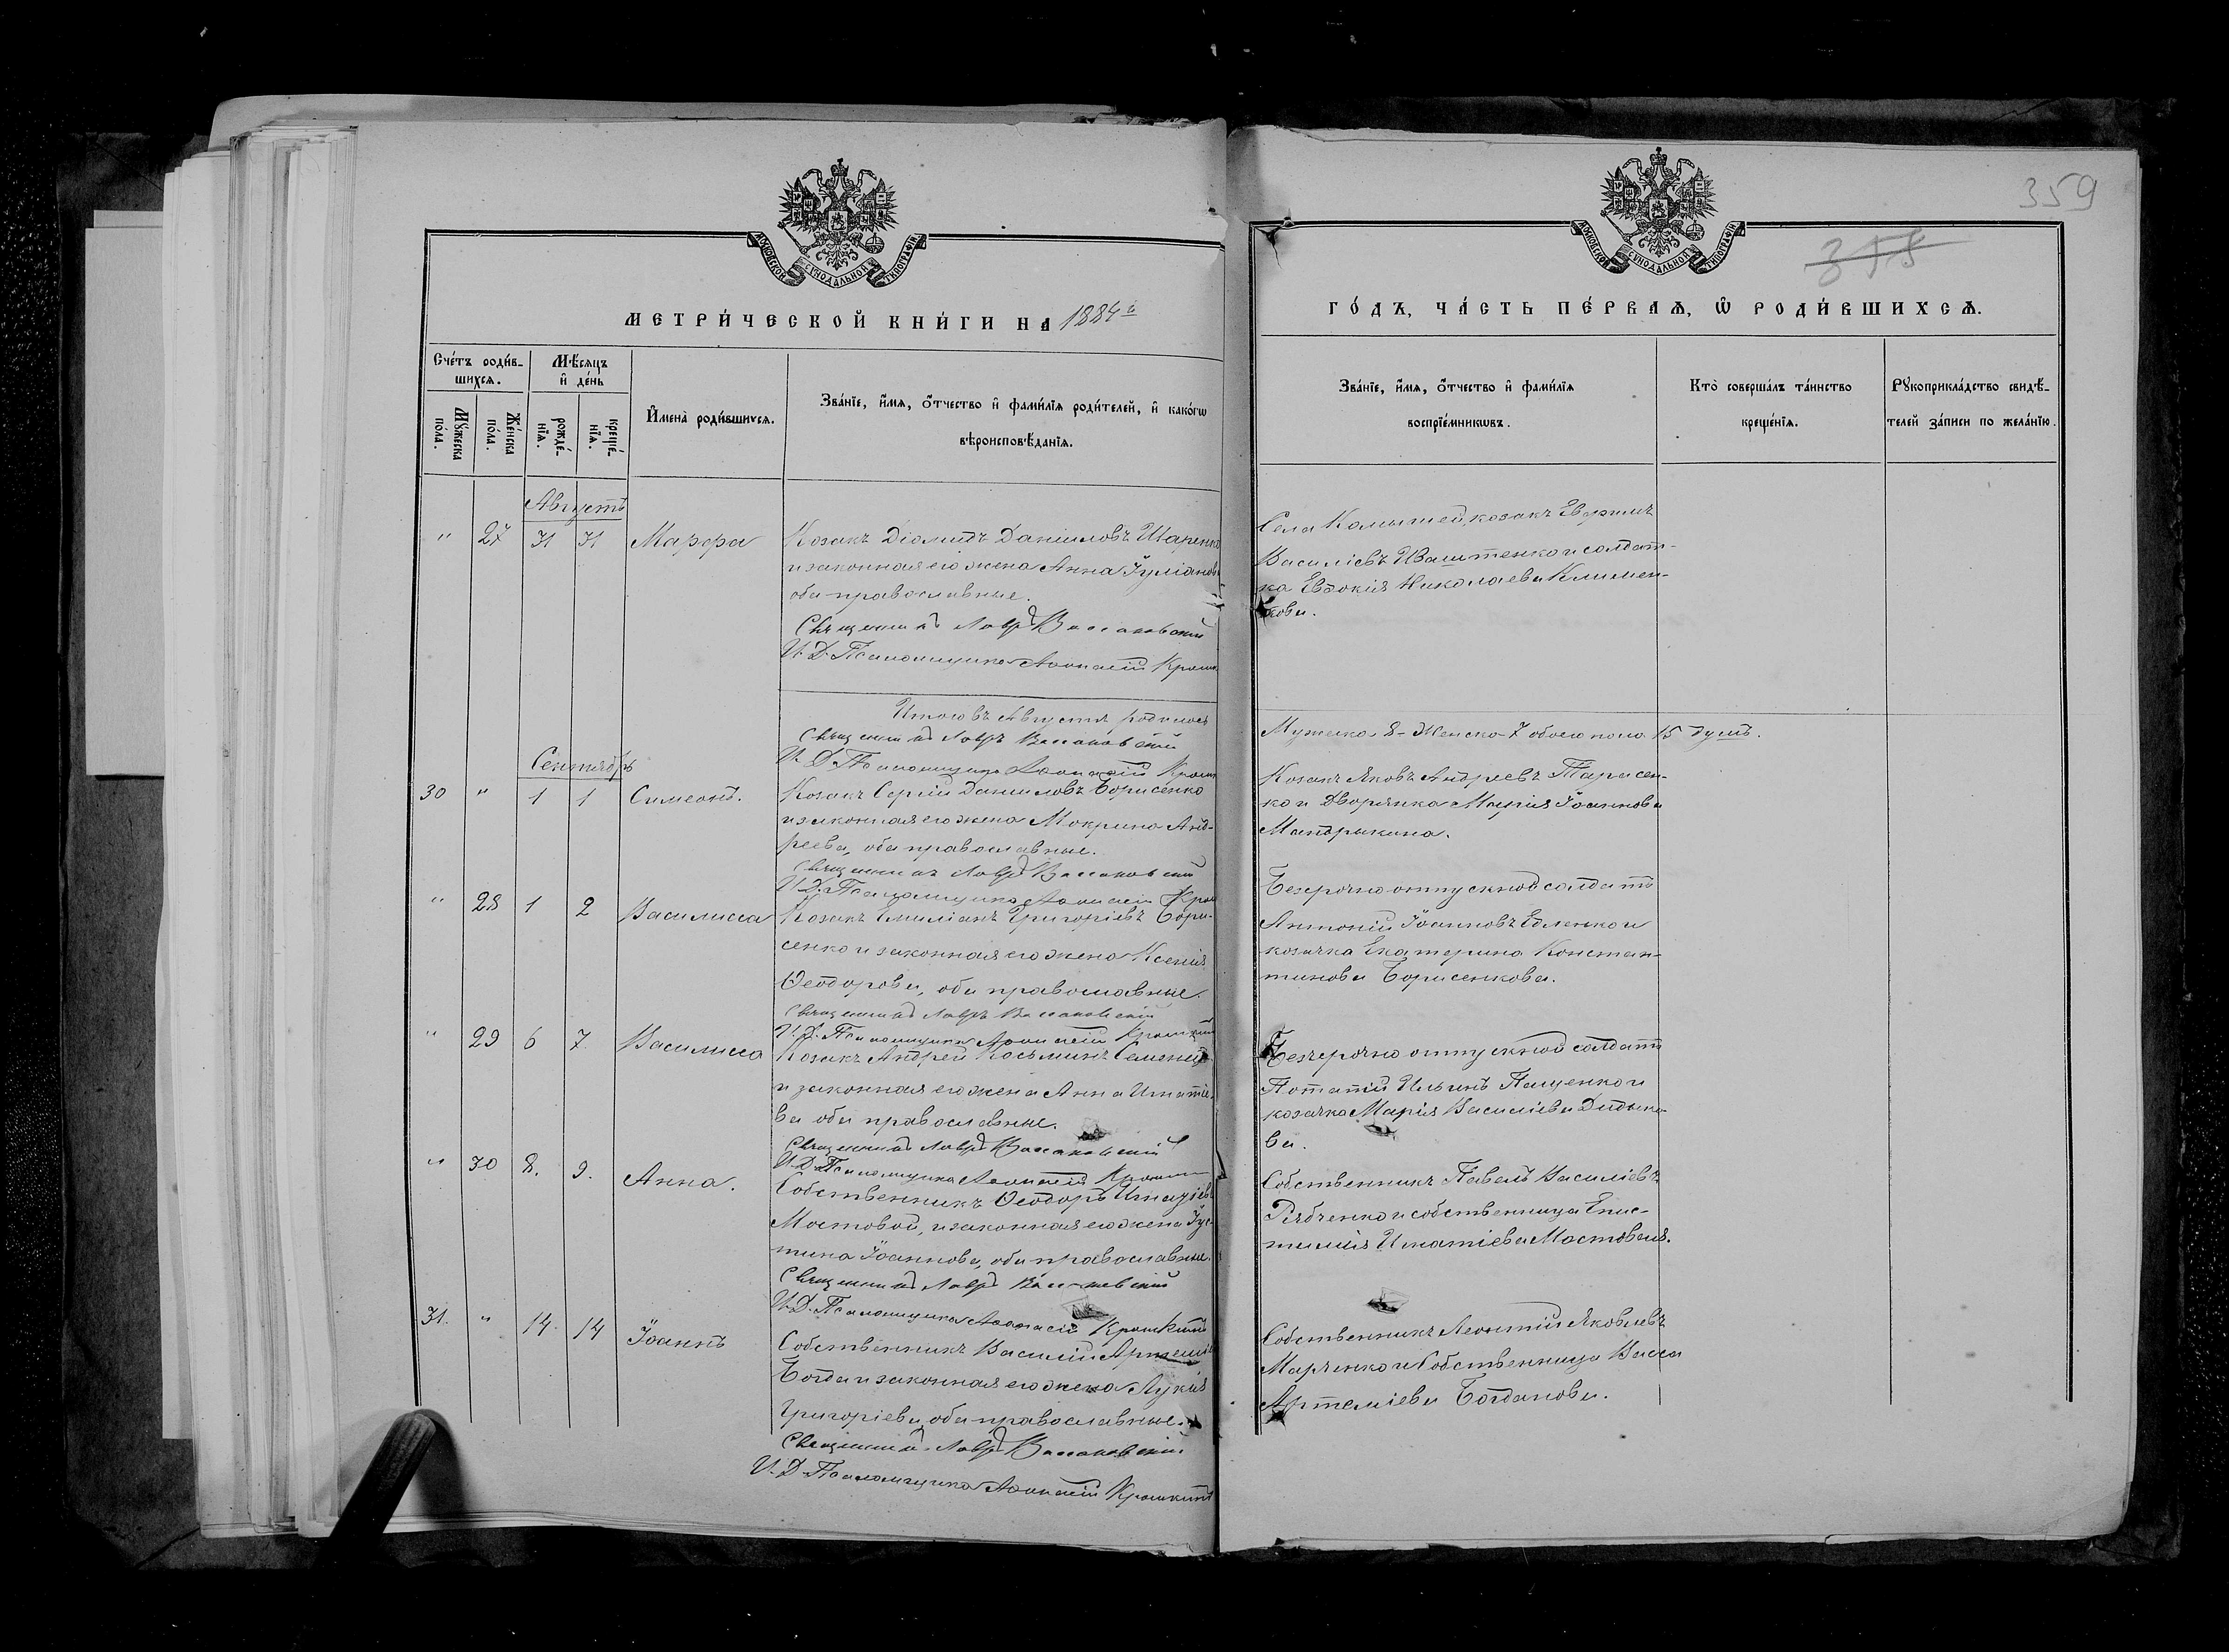 359
355
МОСКОВСКОЙ СѴНОДАЛЬНОЙ ТИПОГРАФІИ
МОСКОВСКОЙ СѴНОДАЛЬНОЙ ТИПОГРАФІИ
МЕТРИ́ЧЕСКОЙ КНИ́ГИ НА 1884й
ГО́ДЪ, ЧА́СТЬ ПЕ́РВАѦ, Ѿ РОДИ́ВШИХСѦ.
Сче́тъ роди́в-
шихсѧ.
Мѣ́сѧцъ
и҆ де́нь
Мꙋ́жеска
по́ла.
Же́нска
по́ла.
рожде́-
нїѧ.
креще́-
нїѧ.
И҆мена̀ роди́вшихсѧ.
Зва́нїе, и҆́мѧ, ѻ҆́тчество и҆ фами́лїѧ роди́телей, и҆ како́гѡ
вѣроисповѣ́данїѧ.
Зва́нїе, и҆́мѧ, ѻ҆́тчество и҆ фами́лїѧ
воспрїе́мникѡвъ.
Кто̀ соверша́лъ та́инство
креще́нїѧ.
Рꙋкоприкла́дство свидѣ́-
телей за́писи по жела́нїю.
Августъ
" 27 31 31 Марфа
Козакъ Діомидъ Даниловъ Шаренко
и законная его жена Анна Іуліанова
оба православные.
Священникъ Лавръ
И. Д. Псаломщика Афанасій
Села Камышей, козакъ
Василіевъ Иваштенко и солдат-
ка Евдокія Николаева Климен-
кова.
Итого въ Августѣ родилось
Мужеска 8 - Женска 7 обоего пола 15 душъ.
Священникъ Лавръ
И. Д. Псаломщика Афанасій
Сентябрь
30 " 1 1 Симеонъ.
Козакъ Сергій Даниловъ Борисенко
и законная его жена Макрина Анд-
реева, оба православные.
Священникъ Лавръ
И. Д. Псаломщика Афанасій
Козакъ Яковъ Андреевъ Тарасен-
ко и Дворянка Марія Іоаннова
Мандрыкина.
" 28 1 2 Василисса
Козакъ Емиліанъ Григоріевъ Бори-
сенко и законная его жена Ксенія
Ѳеодорова, оба православные.
Священникъ Лавръ
И. Д. Псаломщика Афанасій
Безсрочно отпускной солдатъ
Антоній Іоанновъ и
козачка Екатерина Констан-
тинова Борисенкова.
" 29 6 7 Василисса
Козакъ Андрей Косьминъ
и законная его жена Анна Игнатіе-
ва оба православные.
Священникъ Лавръ
И. Д. Псаломщика Афанасій
Безсрочно отпускной солдатъ
Потапій Ильинъ Пащенко и
козачка Марія Василіева Дидыко-
ва.
" 30 8. 9. Анна.
Собственникъ Ѳеодоръ
Мостовой, и законная его жена Іус-
тина Іоаннова, оба православные.
Священникъ Лавръ
И. Д. Псаломщика Афанасій
Собственникъ Павелъ Василіевъ
Рябченко и собственница Епис-
тимія Игнатіева Мостовая.
31. " 14. 14 Іоаннъ
Собственникъ Василій
Богда и законная его жена Лукія
Григоріева, оба православные.
Священникъ Лавръ
И. Д. Псаломщика Афанасій
Собственникъ Леонтій Яковлевъ
Марченко и Собственница Васса
Артеміева Богданова.